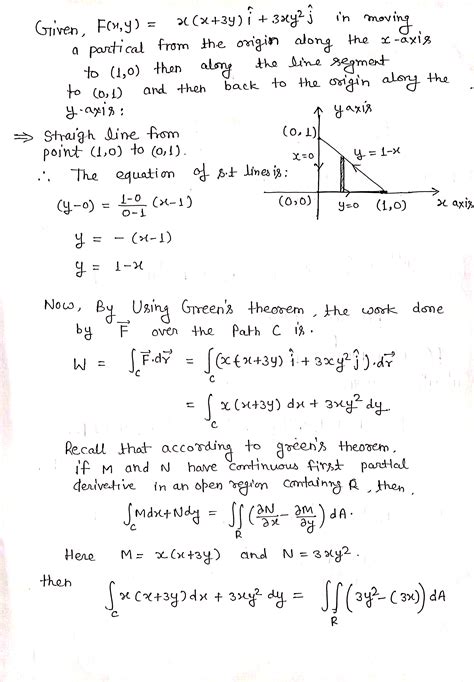 Given, F(x,y) = x(x+3y) î + 3xy² ĵ in moving
a partical from the origin along the x-axis
to (1,0) then along the line segment
to (0,1) and then back to the origin along the
y-axis:
⇒ Straigh line from
point (1,0) to (0,1).
∴ The equation of s.t lines is:
(y-0) = (1-0)/(0-1) (x-1)
y = -(x-1)
y = 1-x
y axis
(0,1)
x=0
y = 1-x
(0,0)
y=0
(1,0)
x axis
Now, By Using Green's theorem, the work done
by F⃗ over the Path C is.
W = ∫_C F⃗.dr⃗ = ∫_C (x(x+3y) î + 3xy² ĵ).dr⃗
= ∫_C x(x+3y) dx + 3xy² dy.
Recall that according to green's theorem,
if M and N have continuous first partial
derivative in an open region containng R, then,
∫_C Mdx+Ndy = ∬_R (∂N/∂x - ∂M/∂y) dA.
Here M = x(x+3y) and N = 3xy².
then
∫_C x(x+3y)dx + 3xy² dy = ∬_R (3y²-(3x)) dA